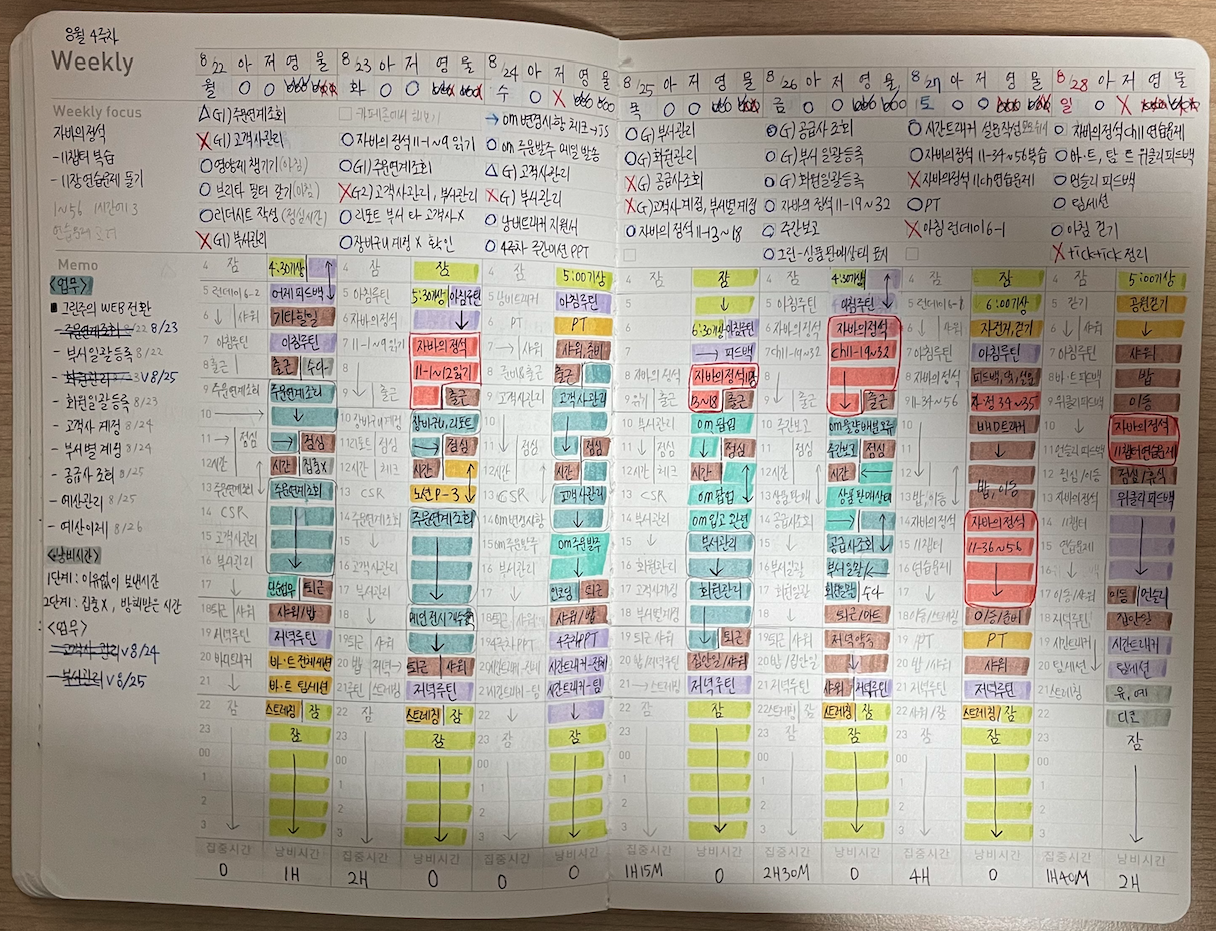 8월 4주차
Weekly
Weekly focus
자바의정석
-11챕터 복습
-11장 연습문제 풀기
1~56 1시간에 3
Memo
<업무>
■ 그린주의 WEB 전환
- 주문연계조회 8/22 8/23
- 부서일괄등록 8/22
- 회원관리 8/23 V8/25
- 회원일괄등록 8/23
- 고객사 계정 8/24
- 부서별 계정 8/24
- 공급사 조회 8/25
- 예산관리 8/25
- 예산이체 8/26
<낭비시간>
1단계 : 이유없이 보낸시간
2단계 : 집중X, 방해받은 시간
<업무>
- 고객사 관리 V 8/24
- 부서관리 V 8/25
8/22 아 저 영 물
월 O O
△ G1) 주문연계조회
X G1) 고객사관리
O 영양제 챙기기 (아침)
O 브리타 필터 갈기 (아침)
O 리더시트 작성 (점심시간)
X G1) 부서관리
8/23 아 저 영 물
화 O O
O 자바의 정석 11-1~9 읽기
O G1) 주문연계조회
X G2) 고객사관리, 부서관리
O 리포트 부서 타 고객사 X
O 장바구니 계정 X 확인
8/24 아 저 영 물
수 O X
→ om 변경사항 체크 → JS
O om 주문발주 메일 발송
△ G) 고객사관리
X G) 부서관리
O 낭비트래커 지원서
O 4주차 주간미션 PPT
8/25 아 저 영 물
목 O O
O G) 부서관리
O G) 회원관리
X G) 공급사조회
X G) 고객사계정, 부서별계정
O 자바의 정석 11-13~18
8/26 아 저 영 물
금 O O
O G) 공급사 조회
O G) 부서일괄등록
O G) 회원일괄등록
O 자바의 정석 11-19~32
O 주간보고
O 그린-상품판매상태 표지
8/27 아 저 영 물
토 O O
O 시간트래커 실용작업
O 자바의정석 11-34~56복습
X 자바의정석 11ch연습문제
O PT
X 아침 런데이 6-1
8/28 아 저 영 물
일 O X
O 자바의정석 ch11 연습문제
O 바·트, 탐·트 위클리피드백
O 먼슬리 피드백
O 팀세션
O 아침 걷기
X ticktick 정리
4 잠 4:30기상
5 런데이6-2 어제 피드백
6 ↓ 샤워 기타할일
7 아침루틴 아침루틴
8 출근 출근 수다
9 주문연계조회 주문연계조회
10 → ↓
11 → 점심 → 점심
12 시간 시간 집중X
13 주문연계조회 주문연계조회
14 CSR
15 고객사관리
16 부서관리
17 ↓ 민원업무 퇴근
18 퇴근 샤워 샤워/밥
19 저녁루틴 저녁루틴
20 바·트 전체세션
21 ↓ 바·트 팀세션
22 잠 스트레칭 잠
23 잠
00
1
2
3
집중시간 낭비시간
0 1H
4 잠 잠
5 아침루틴 5:30기상 아침루틴
6 자바의정석 ↓
7 11-1~9 읽기 자바의정석
8 11-1~12읽기
9 ↓ 출근 출근
10 장바구니계정 장바구니, 리포트
11 리포트 점심 → 점심
12 시간 체크 시간
13 CSR 노션 P-3
14 주문연계조회 주문연계조회
15 ↓
16 고객사관리
17 부서관리
18 메인전시개수
19 퇴근 샤워
20 밥 저녁→ 퇴근 샤워
21 루틴 스트레칭 저녁루틴
22 잠 스트레칭 잠
23 잠
00
1
2
3
집중시간 낭비시간
2H 0
4 잠 5:00기상
5 낭비트래커 아침루틴
6 PT PT
7 → 샤워 샤워, 준비
8 준비&출근 출근
9 고객사관리 고객사관리
10
11 ↓ 점심 점심
12 시간 시간
13 CSR 고객사관리
14 om변경사항 ↓
15 om주문발주 om주문발주
16 부서관리 ↓
17 ↓ 민코딩 퇴근
18 퇴근 샤워 샤워/밥
19 4주차PPT 4주차PPT
20 시간트래커-전체
21 시간트래커-팀 시간트래커-팀
22 ↓ ↓
23 잠 잠
00
1
2
3
집중시간 낭비시간
0 0
4 잠 잠
5 ↓
6 6:30기상 아침루틴
7 → 피드백
8 자바의 정석 자바의정석 11장
9 읽기 출근 13~18 출근
10 부서관리 om 팝업
11 ↓ 점심 ↓ 점심
12 시간 체크 시간
13 CSR om 팝업
14 부서관리 om입고 완련
15 ↓ 부서관리
16 회원관리 ↓
17 고객사계정 회원관리
18 부서별계정
19 퇴근 샤워 ↓ 퇴근
20 밥/저녁루틴 집안일/샤워
21 → 스트레칭 저녁루틴
22 잠 잠
23
00
1
2
3
집중시간 낭비시간
1H15M 0
4 잠 4:30기상
5 아침루틴 아침루틴
6 자바의정석 자바의정석
7 ch11-19~32 ch11-19~32
8
9 ↓ 출근 ↓ 출근
10 주간보고
11 ↓ 점심 주간보고 점심
12 시간 시간 ←
13 상품판매 상품판매상태
14 공급사조회 →
15 ↓ 공급사조회
16 부서일괄 부서일괄
17 회원일괄 회원일괄 수다
18 ↓ 퇴근/마트
19 퇴근 샤워 저녁약속
20 밥/집안일 ↓
21 저녁루틴 샤워 저녁루틴
22 스트레칭 잠 스트레칭 잠
23 잠 잠
00
1
2
3
집중시간 낭비시간
2H30M 0
4 잠 잠
5 런데이6-1 6:00기상
6 ↓ 샤워 자전거, 걷기
7 아침루틴 아침루틴
8 자바의정석
9 11-34~56 자·정 34~35
10 바D트래커
11
12 ↓
13 밥, 이동 밥, 이동
14 자바의정석 자바의정석
15 11챕터 11-36~56
16 연습문제
17 ↓ ↓
18 이동/스트레칭 이동/준비
19 PT PT
20 밥/샤워 샤워
21 저녁루틴 저녁루틴
22 샤워/잠 스트레칭/잠
23 잠 잠
00
1
2
3
집중시간 낭비시간
4H 0
4 잠 5:00기상
5 걷기 공원걷기
6 ↓ 샤워 ↓
7 아침루틴 샤워
8 바·트피드백 밥
9 위클리피드백 이동
10 ↓ 자바의정석
11 먼슬리피드백 11챕터연습문제
12 점심/이동 점심/휴식
13 자바의정석 위클리피드백
14 11챕터
15 연습문제
16 ↓ ↓
17 이동/샤워 이동 먼슬리
18 저녁루틴 집안일
19 시간트래커 시간트래커
20 팀세션 팀세션
21 스트레칭 유, 예
22 디즈
23 잠
00
1
2
3
집중시간 낭비시간
1H40M 2H